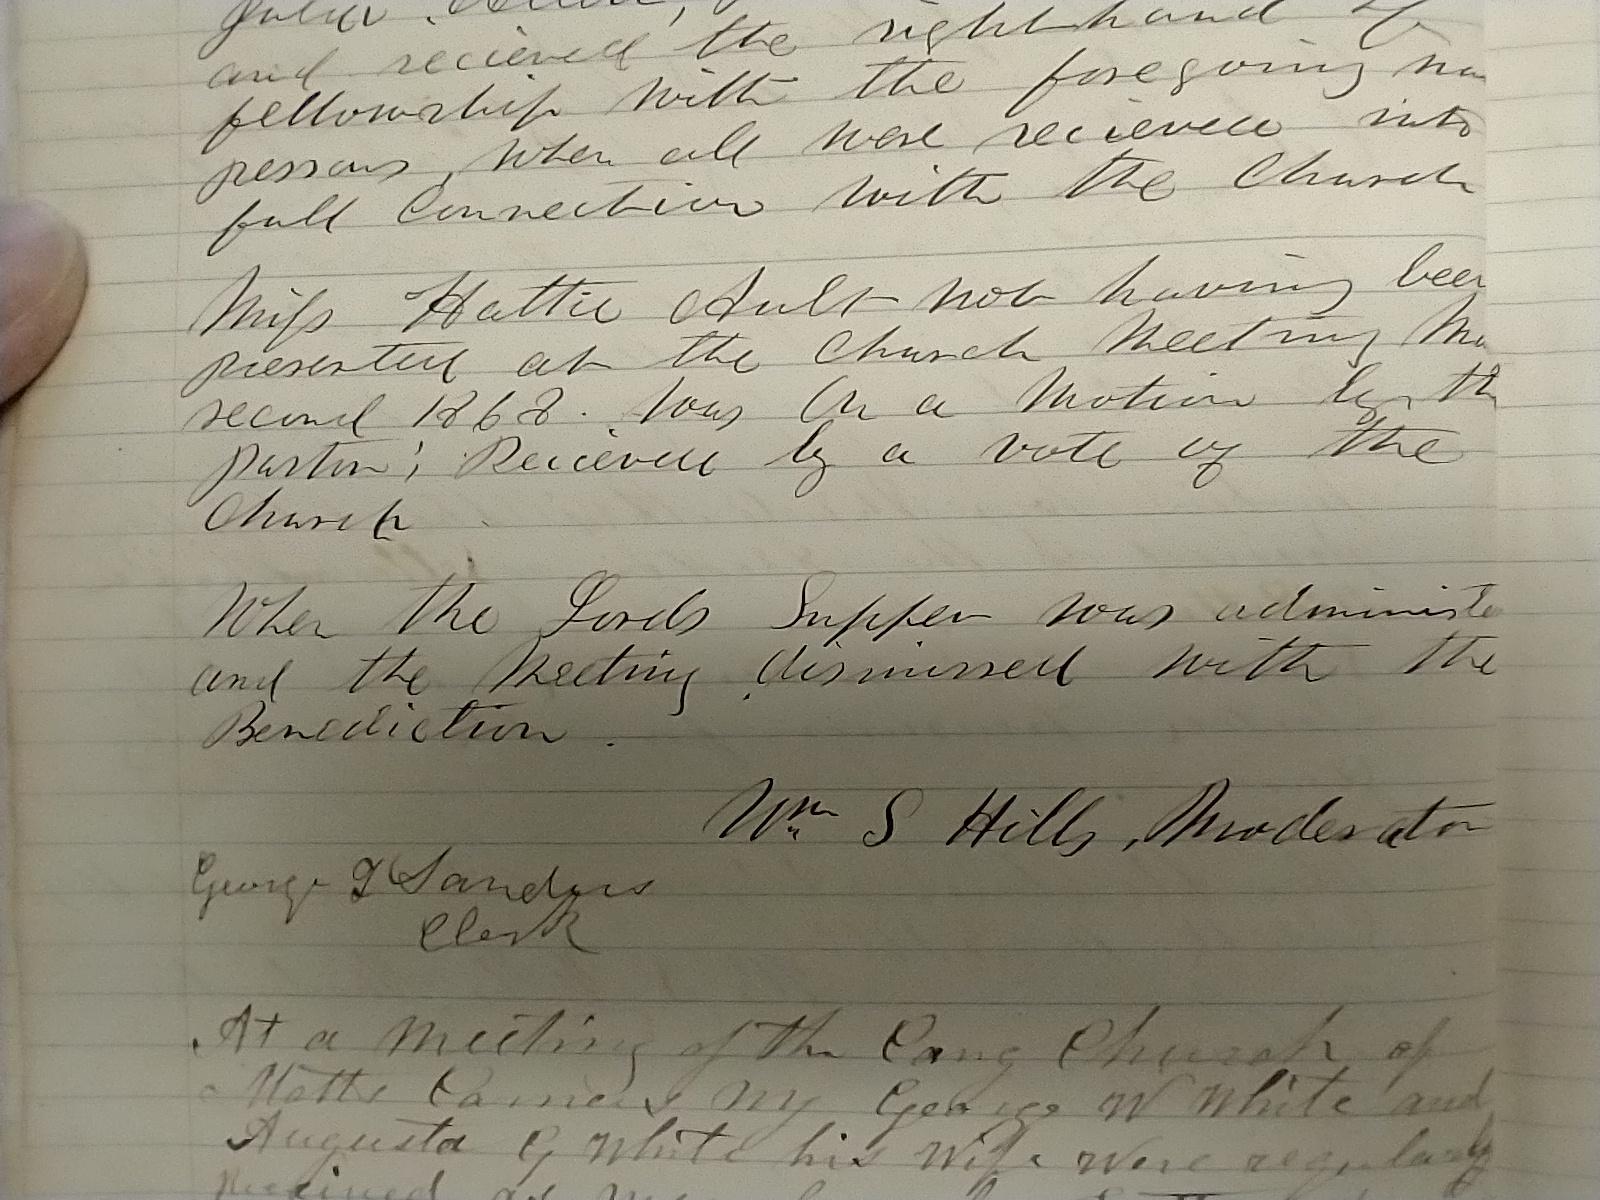 and recieved the right hand of
fellowship with the foregoing
persons, when all were recieved into
full Connection with the Church
Miss Hattie Ault not having been
presented at the Church Meeting
second 1868. was On a Motion by th
pastor; Recieved by a vote of the
Church
When the Lords Supper was administe
and the Meeting dismissed with the
Benediction.
Wm S Hills, Moderator
George T Sanders
Clerk
At a Meeting of the Cong Church of
Motts Corners NY George W White and
Augusta G White his Wife were regularly
Received as